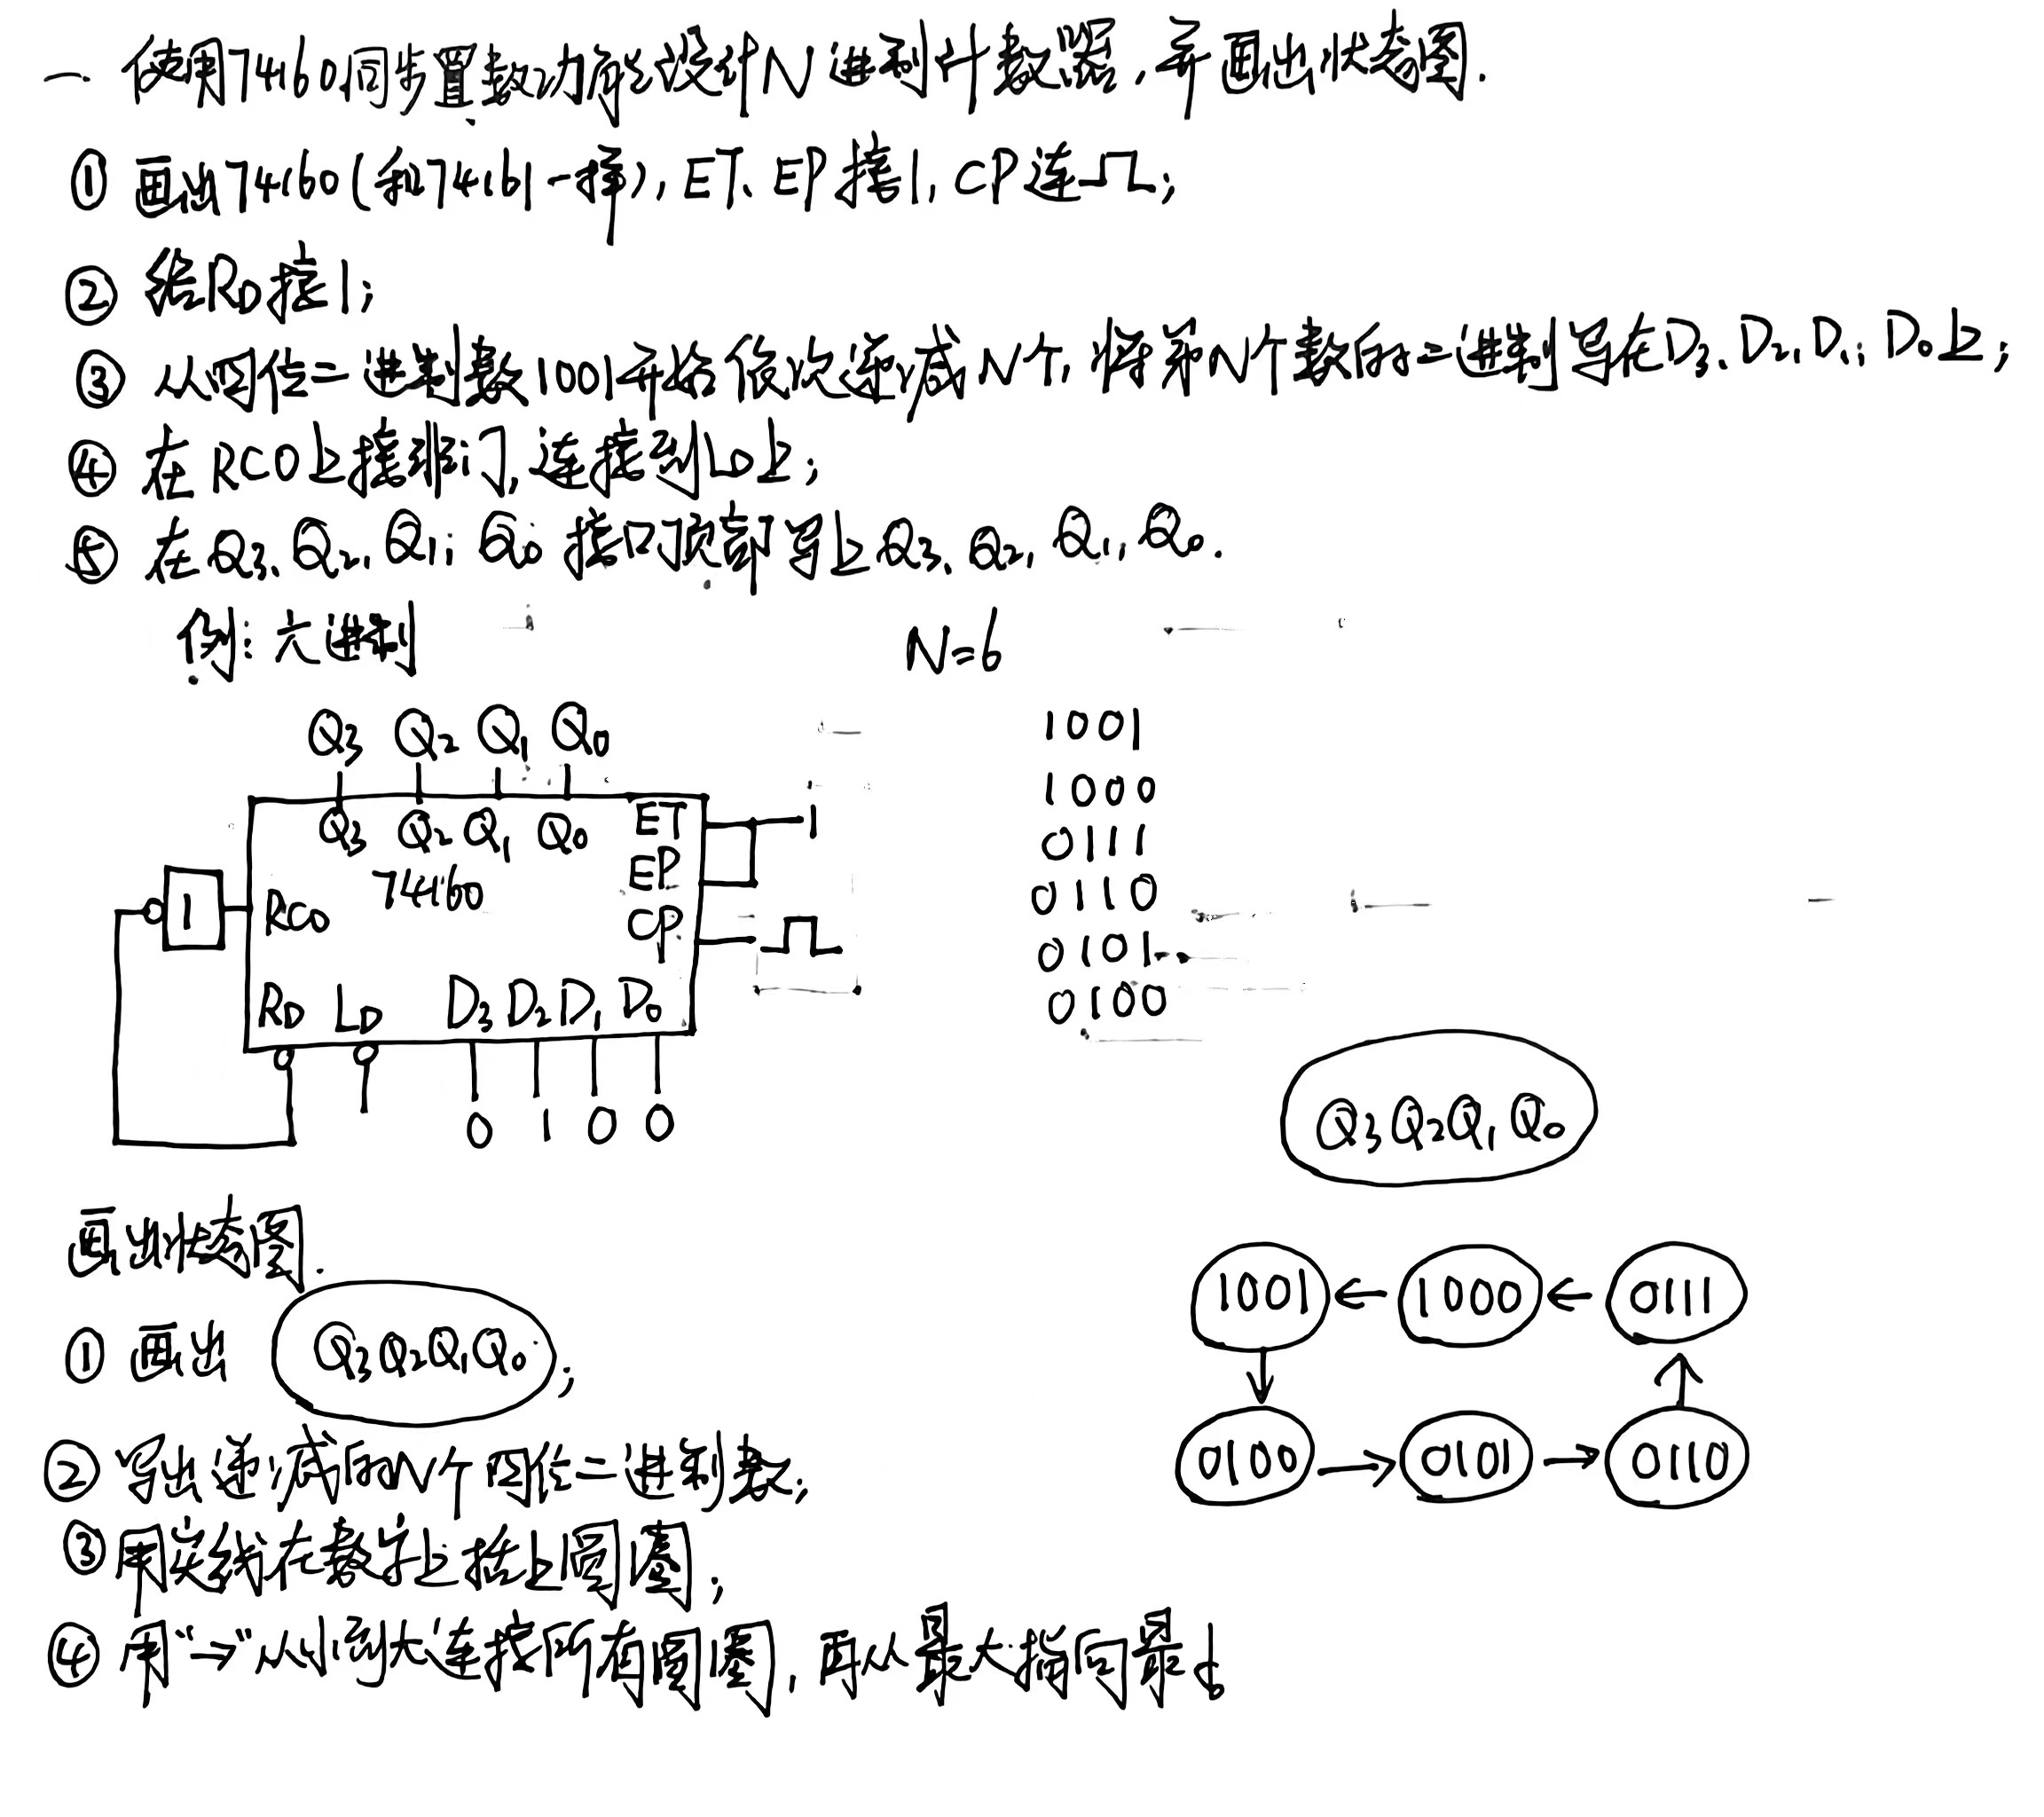 一 使用74160同步置数功能设计N进制计数器，并画出状态图.
① 画出74160(和74161一样), ET、EP接1, CP连⎍;
② 给RD接1;
③ 从四位二进制数1001开始依次递减N个, 将第N个数的二进制写在D3、D2、D1、D0上;
④ 在RCO上接非门, 连接到LD上;
⑤ 在Q3、Q2、Q1、Q0接口顶部写上Q3、Q2、Q1、Q0.
例: 六进制 N=6
Q3 Q2 Q1 Q0
Q3 Q2 Q1 Q0 ET 1
EP
74160
1 RCO CP
RD LD D3 D2 D1 D0
0 1 0 0
1001
1000
0111
0110
0101
0100
Q3Q2Q1Q0
1001 ← 1000 ← 0111
↓ ↑
0100 → 0101 → 0110
画出状态图.
① 画出 Q3Q2Q1Q0;
② 写出递减的N个四位二进制数;
③ 用实线在数字上括上圆圈;
④ 用“→”从小到大连接所有圆圈, 再从最大指向最小